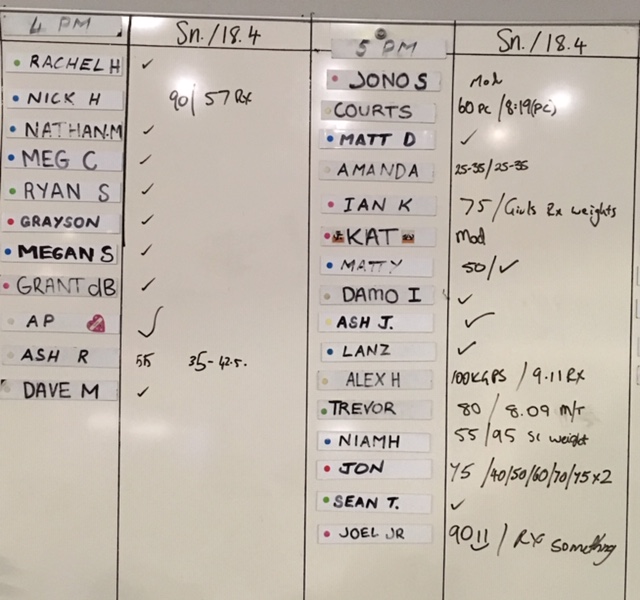 4 PM Sn./18.4
RACHEL H ✓
NICK H 90/57 Rx
NATHAN.M ✓
MEG C ✓
RYAN S ✓
GRAYSON ✓
MEGAN S ✓
GRANT dB ✓
AP ✓
ASH R 55 35-42.5.
DAVE M ✓
5 PM Sn./18.4
JONO S Mod
COURTS 60 PC /8:19(PC)
MATT D ✓
AMANDA 25-35/25-35
IAN K 75/Girls Rx weights
KAT Mod
MATTY 50/✓
DAMO I ✓
ASH J. ✓
LANZ ✓
ALEX H 100KGPS / 9.11 RX
TREVOR 80 / 8.09 M/T
NIAMH 55/95 Sc weight
JON 75 /40/50/60/70/75x2
SEAN T. ✓
JOEL JR 90!! / RX Something